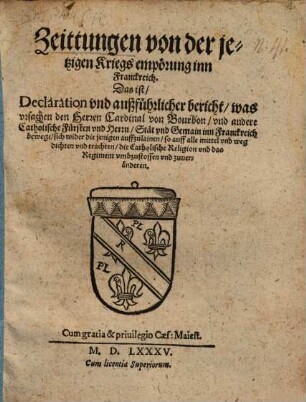 Zeittungen von der je⸗
tzigen Kriegs empörung inn
Franckreich.
Das ist/
Declaration vnd außführlicher bericht/ was
vrsachen den Herren Cardinal von Bourbon/ vnd andere
Catholische Fürsten vnd Herrn/ Stät vnd Gemain inn Franckreich
bewegt/ sich wider die jenigen auffzulainen/ so auff alle mittel vnd weg
dichten vnd trachten/ die Catholische Religion vnd das
Regiment vmbzustossen vnd zuuer⸗
änderen.
PL
R
PL
Cum gratia & priuilegio Cæs: Maiest.
M. D. LXXXV.
Cum licentia Superiorum.